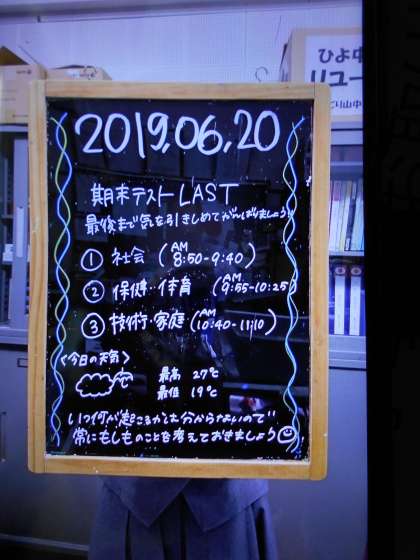 ひよ中
リユー
どり山中
2019.06.20
期末テスト LAST
最後まで気を引きしめてがんばりましょう!
① 社会 (AM 8:50-9:40)
② 保健・体育 (AM 9:55-10:25)
③ 技術・家庭 (AM 10:40-11:10)
<今日の天気>
最高 27℃
最低 19℃
いつ何が起こるかは分からないので
常にもしものことを考えておきましょう